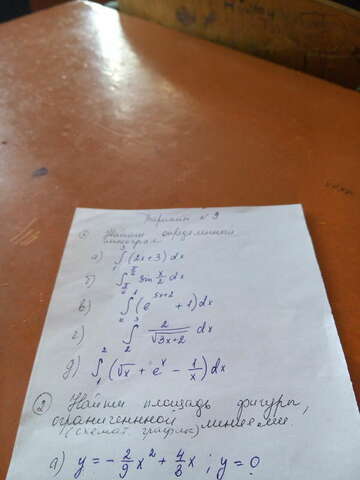 Вариант № 9
① Найти определенный
интеграл
а) ∫ (2x+3) dx
б) ∫ sin x/2 dx
в) ∫ (e^(5x+2) + 1) dx
г) ∫ 2/√(3x+2) dx
д) ∫₁² (√x + eˣ − 1/x) dx
② Найти площадь фигуры,
ограниченной линиями.
(схемат. график)
а) y = − 2/9 x² + 4/3 x ; y = 0